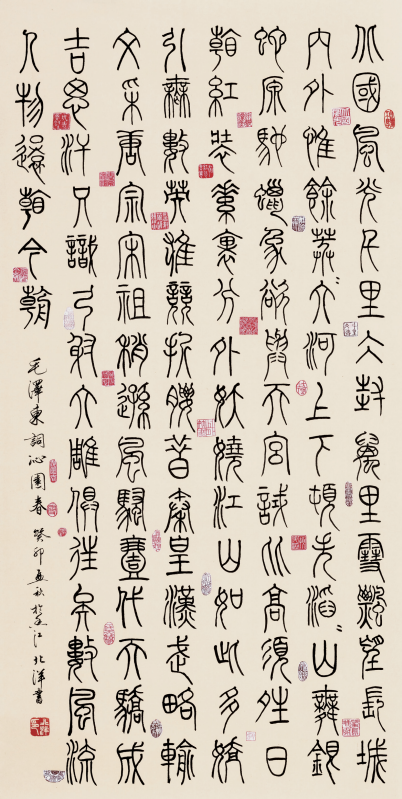 北國風光千里冰封萬里雪飄望長城
內外惟餘莽〻大河上下頓失滔〻山舞銀
蛇原馳蠟象欲與天宮試比高須晴日
看紅裝素裹分外妖嬈江山如此多嬌
引無數英雄競折腰昔秦皇漢武略輸
文采唐宗宋祖稍遜風騷壹代天驕成
吉思汗只識弓射大雕俱往矣數風流
人物還看今朝
毛澤東詞沁園春 癸卯孟秋於江北洋書